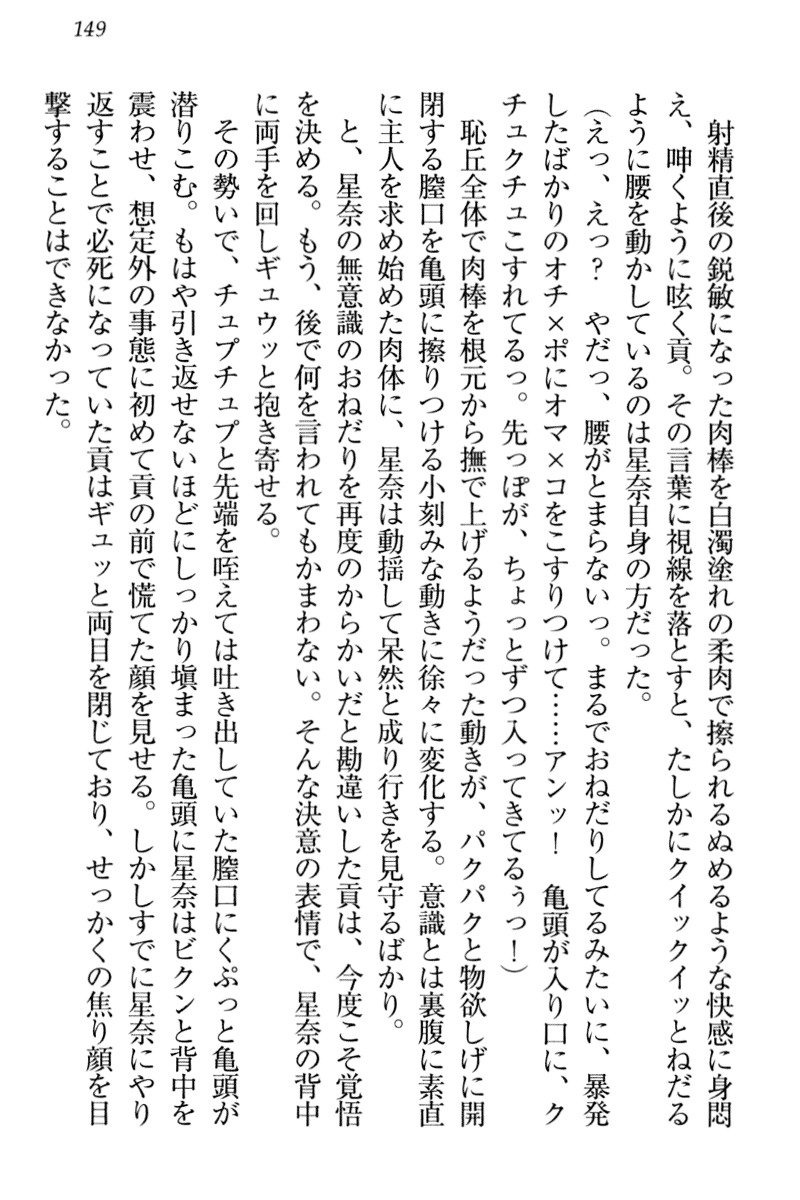 149
射精直後の鋭敏になった肉棒を白濁塗れの柔肉で擦られるぬめるような快感に身悶
え、呻くように呟く貢。その言葉に視線を落とすと、たしかにクイックイッとねだる
ように腰を動かしているのは星奈自身の方だった。
（えっ、えっ？　やだっ、腰がとまらないっ。まるでおねだりしてるみたいに、暴発
したばかりのオチ×ポにオマ×コをこすりつけて……アンッ！　亀頭が入り口に、ク
チュクチュこすれてるっ。先っぽが、ちょっとずつ入ってきてるぅっ！）
恥丘全体で肉棒を根元から撫で上げるようだった動きが、パクパクと物欲しげに開
閉する膣口を亀頭に擦りつける小刻みな動きに徐々に変化する。意識とは裏腹に素直
に主人を求め始めた肉体に、星奈は動揺して呆然と成り行きを見守るばかり。
と、星奈の無意識のおねだりを再度のからかいだと勘違いした貢は、今度こそ覚悟
を決める。もう、後で何を言われてもかまわない。そんな決意の表情で、星奈の背中
に両手を回しギュウッと抱き寄せる。
その勢いで、チュプチュプと先端を咥えては吐き出していた膣口にくぷっと亀頭が
潜りこむ。もはや引き返せないほどにしっかり塡まった亀頭に星奈はビクンと背中を
震わせ、想定外の事態に初めて貢の前で慌てた顔を見せる。しかしすでに星奈にやり
返すことで必死になっていた貢はギュッと両目を閉じており、せっかくの焦り顔を目
撃することはできなかった。